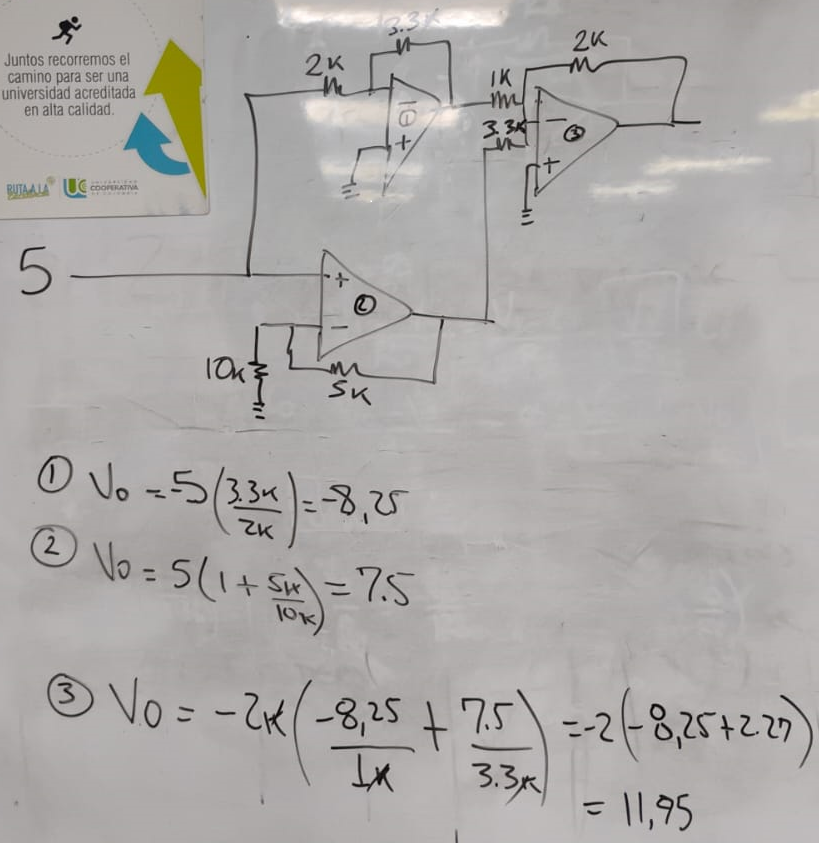 Juntos recorremos el
camino para ser una
universidad acreditada
en alta calidad.
RUTA A LA
UC UNIVERSIDAD
COOPERATIVA
DE COLOMBIA
3.3K
2K
2K
1K
3.3K
−
①
+
−
③
+
5
+
②
−
10K
5K
① Vo = -5 (3.3K/2K) = -8,25
② Vo = 5(1 + 5K/10K) = 7.5
③ Vo = -2K (-8,25/1K + 7.5/3.3K) = -2(-8,25+2.27)
= 11,95